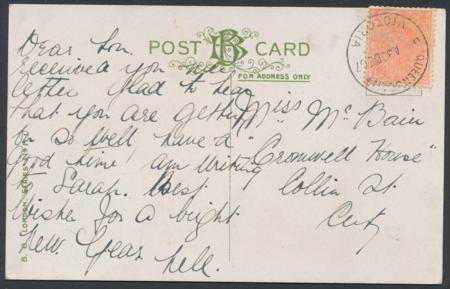 POST CARD
B B
FOR ADDRESS ONLY
VICTORIA
Dear Lou.
received you
letter Glad to hear
that you are getting
on so well, have a
good time, am writing
to Sarah. Best
Wishes for a bright
New Year Nell.
Miss McBain
"Cromwell House"
Collin St
City
B. B. LONDON. SERIES